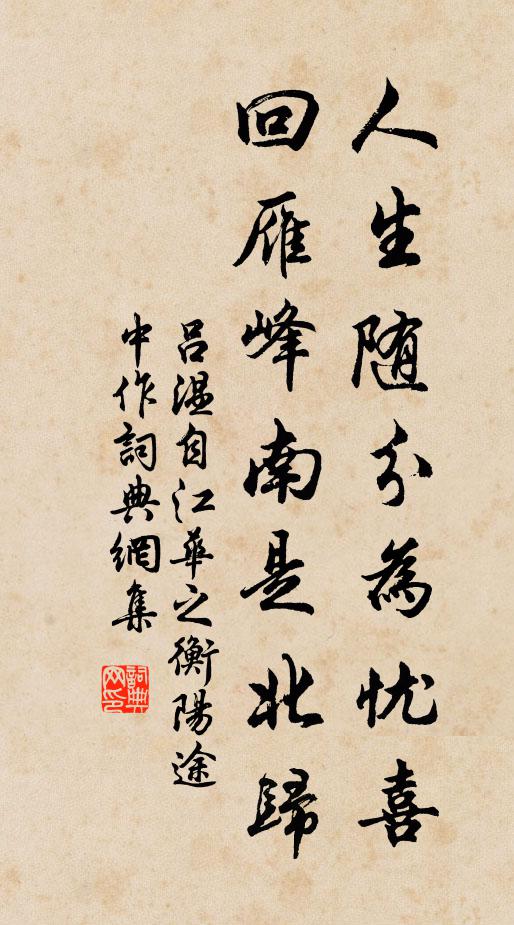 人生随分為忧喜
回雁峰南是北歸
呂温自江華之衡陽途
中作詞典網集
詞典
网印